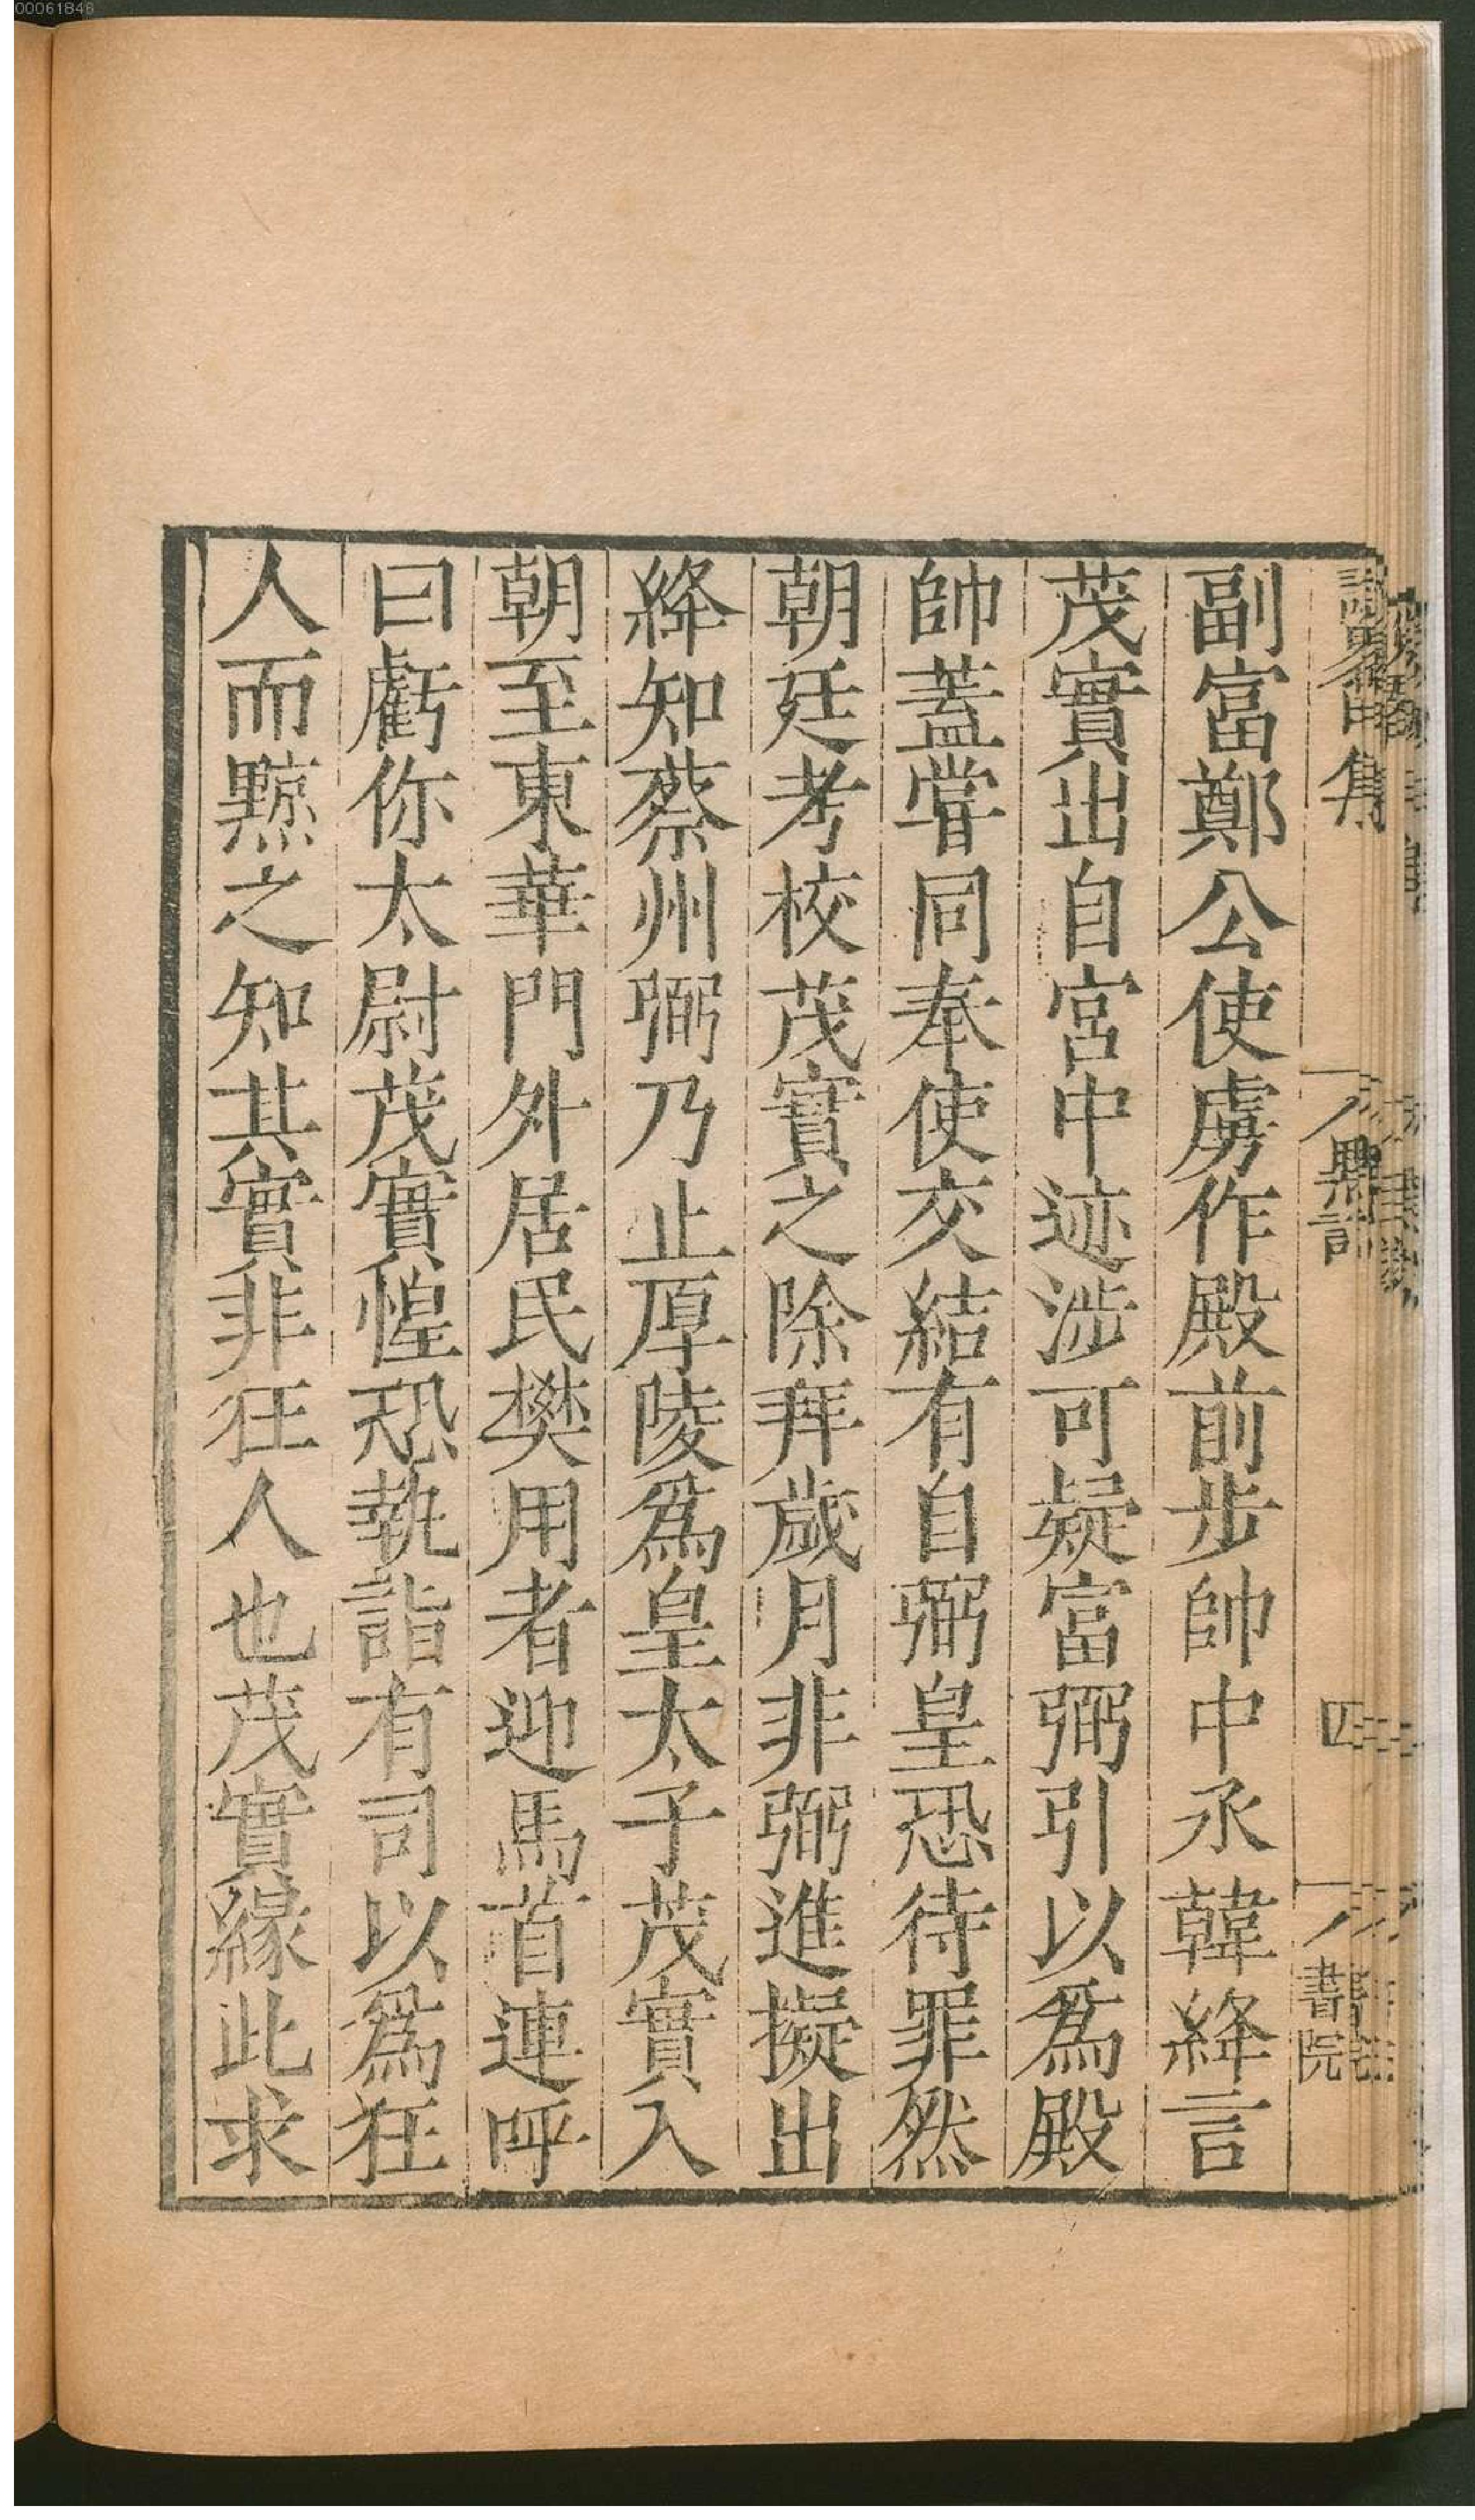 00061848
副富鄭公使虜作殿前步帥中丞韓絳言
茂實出自宮中迹涉可疑富弼引以為殿
帥蓋嘗同奉使交結有自弼皇恐待罪然
朝廷考校茂實之除拜歲月非弼進擬出
絳知蔡州弼乃止厚陵為皇太子茂實入
朝至東華門外居民樊用者迎馬首連呼
曰虧你太尉茂實惶恐執詣有司以為狂
人而黥之知其實非狂人也茂實緣此求
默記
四
書院